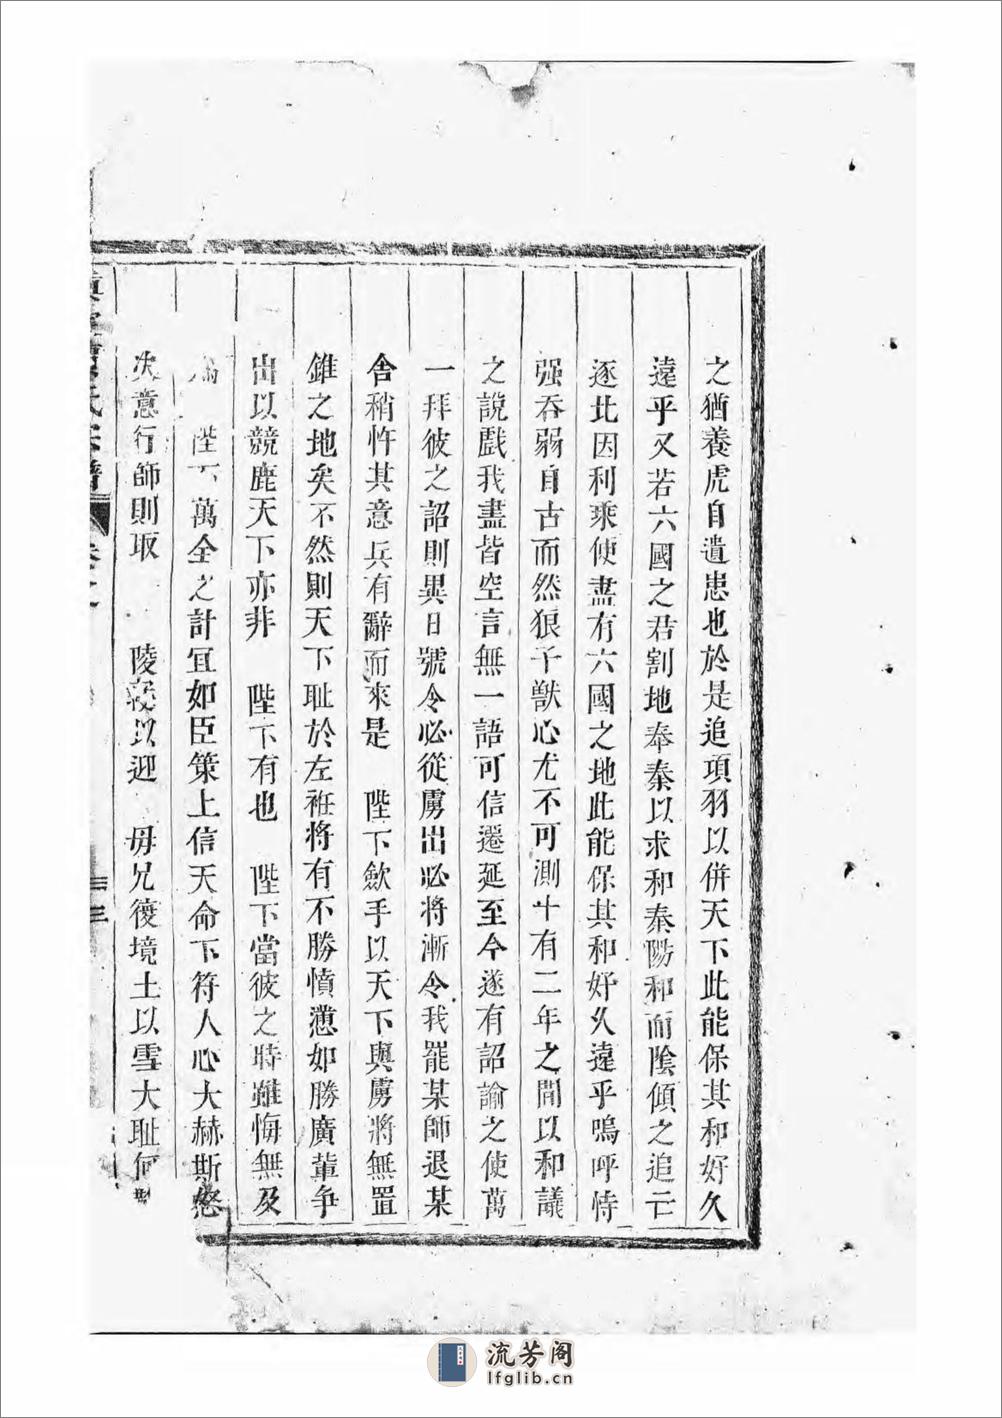 之猶養虎自遺患也於是追項羽以併天下此能保其和好久
遠乎又若六國之君割地奉秦以求和秦陽和而陰傾之追亡
逐北因利乘使盡有六國之地此能保其和好久遠乎嗚呼恃
强吞弱自古而然狼子獸心尤不可測十有二年之間以和議
之說戲我盡皆空言無一語可信遷延至今遂有詔諭之使萬
一拜彼之詔則異日號令必從虜出必將漸令我罷某師退某
舍稍忤其意兵有辭而來是 陛下斂手以天下與虜將無置
錐之地矣不然則天下耻於左袵將有不勝憤懣如勝廣輩争
出以競鹿天下亦非 陛下有也 陛下當彼之時雖悔無及
為 陛下萬全之計宜如臣策上信天命下符人心大赫斯怒
决意行師則取 陵寢以迎 母兄復境土以雪大耻何
氏宗譜 卷之
流芳阁
lfglib.cn